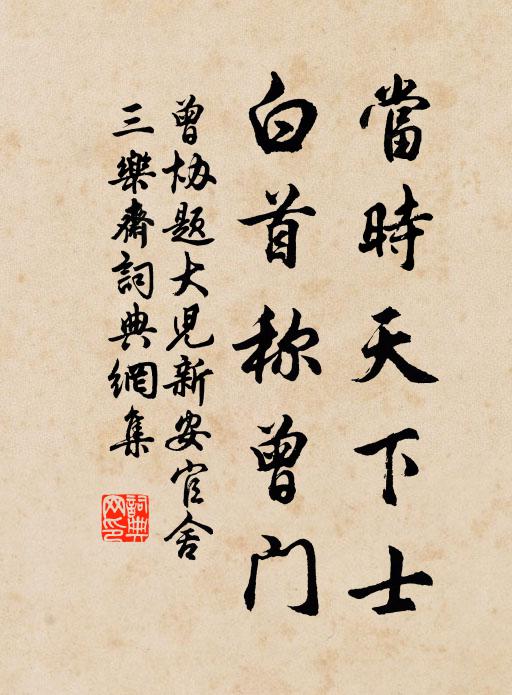 當時天下士
白首称曾門
曾协題大児新安官舍
三樂齋詞典網集
詞典
网印